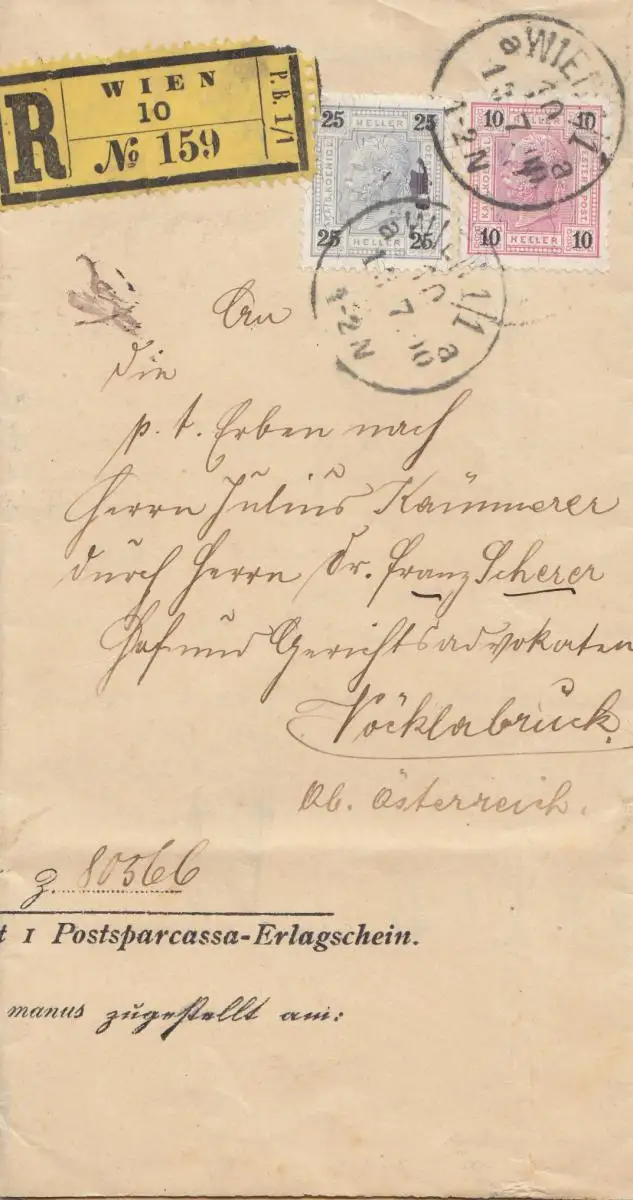 R WIEN 10 № 159 P. B. 1/1
25 HELLER 25
KAIS. KOENIGL.
25 HELLER 25
10 HELLER 10
KAIS. KOENIGL. OESTERR. POST
10 HELLER 10
WIEN 1/1
a 10 a
7 10
1-2N
WIEN 1/1
a 10 a
7 10
1-2N
An
die
p. t. Erben nach
Herrn Julius Kaümmerer
durch Herrn Dr. Franz Scherer
Hof und Gerichtsadvokaten
Vöcklabruck
Ob. Österreich.
z. 80366
t 1 Postsparcassa-Erlagschein.
manus zugestellt am: